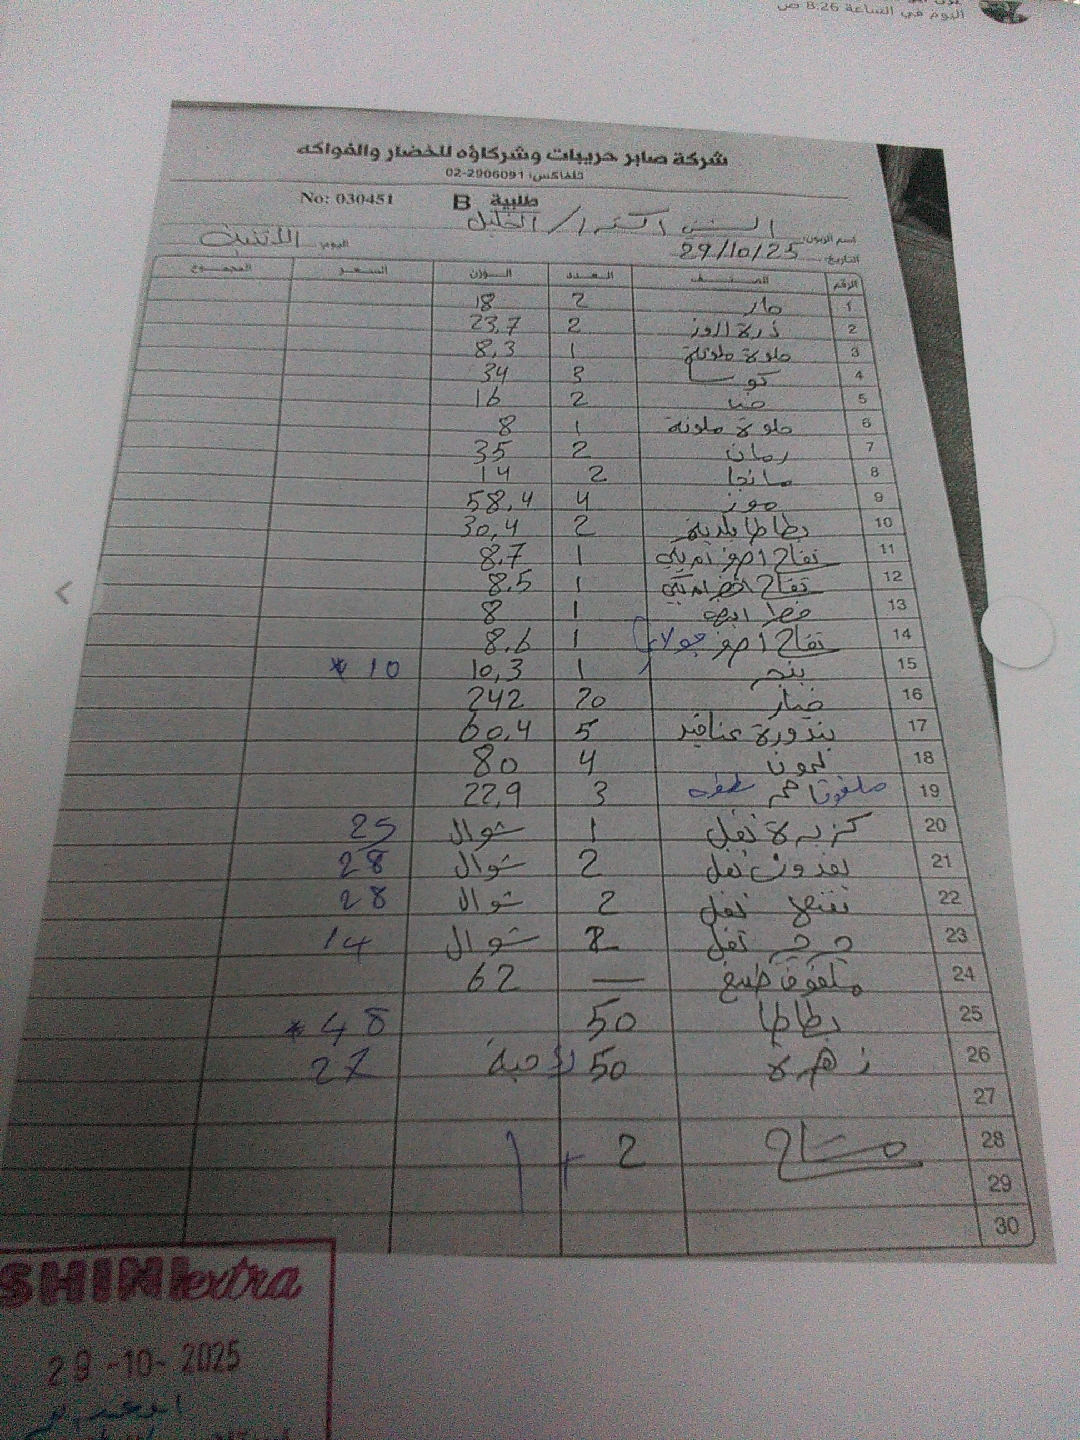 اليوم في الساعة 8:26 ص
شركة صابر حريبات وشركاؤه للخضار والفواكه
تلفاكس: 02-2906091
طلبية B No: 030451
اسم الزبون: الشني اكسترا / الخليل
التاريخ: 29/10/25 اليوم: الاثنين
الرقم الصنف العدد الوزن السعر المجموع
1 2 18
2 ذرة الوز 2 23,7
3 حلوة ملونة 1 8,3
4 كوسا 3 34
5 2 16
6 حلوة ملونة 1 8
7 رمان 2 35
8 مانجا 2 14
9 موز 4 58,4
10 بطاطا بلدية 2 30,4
11 تفاح اصفر امريكي 1 8,7
12 تفاح اخضر امريكي 1 8,5
13 فطر ابيض 1 8
14 تفاح اصفر جولاني 1 8,6
15 بنجر 1 10,3 * 10
16 خيار 20 242
17 بندورة عناقيد 5 60,4
18 ليمون 4 80
19 3 22,9
20 كزبرة نفل 1 شوال 25
21 بقدونس نفل 2 شوال 28
22 نعنع نفل 2 شوال 28
23 جرجير نفل 2 شوال 14
24 ملفوف طبيخ — 62
25 بطاطا 50 * 48
26 زهرة 50 حبة 27
27
28 2 + 1
29
30
SHINI extra
29-10-2025